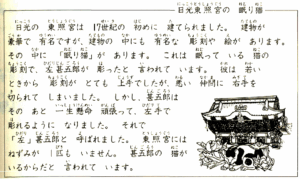 日光東照宮の 眠り猫
日光の 東照宮は 17世紀の 初めに 建てられました。 建物が
豪華で 有名ですが、建物の 中にも 有名な 彫刻や 絵が あります。
その 中に 「眠り猫」が あります。 これは 眠って いる 猫の
彫刻で、左甚五郎が 彫ったと 言われて います。 彼は 若い
ときから 彫刻が とても 上手でしたが、悪い 仲間に 右手を
切られて しまいました。 しかし、甚五郎は
その あと 一生懸命 頑張って、左手で
彫れるように なりました。 それで
「左」甚五郎と 呼ばれました。 東照宮には
ねずみが 1匹も いません。 甚五郎の 猫が
いるからだと 言われて います。